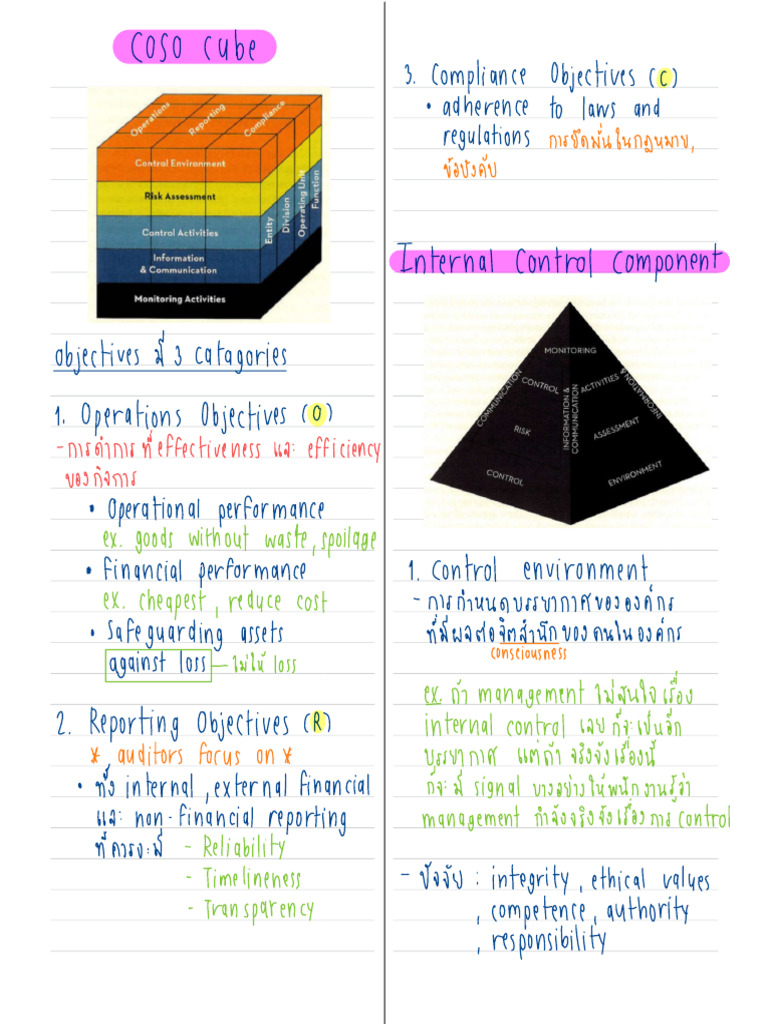 COSO Cube
Operations
Reporting
Compliance
Control Environment
Risk Assessment
Control Activities
Information
& Communication
Monitoring Activities
Entity
Division
Operating Unit
Function
objectives มี 3 catagories
1. Operations Objectives (O)
- การดำการ ที่ effectiveness และ efficiency
ของกิจการ
• Operational performance
ex. goods without waste, spoilage
• Financial performance
ex. cheapest, reduce cost
• Safeguarding assets
against loss — ไม่ให้ loss
2. Reporting Objectives (R)
* auditors focus on *
• ทั้ง internal, external financial
และ non-financial reporting
ที่ควรจะมี - Reliability
- Timelineness
- Transparency
3. Compliance Objectives (C)
• adherence to laws and
regulations การยึดมั่นในกฎหมาย,
ข้อบังคับ
Internal Control Component
MONITORING
CONTROL
ACTIVITIES
RISK
ASSESSMENT
CONTROL
ENVIRONMENT
COMMUNICATION
INFORMATION &
COMMUNICATION
INFORMATION &
1. Control environment
- การกำหนดบรรยากาศขององค์กร
ที่มีผลต่อจิตสำนึกของคนในองค์กร
consciousness
ex. ถ้า management ไม่สนใจเรื่อง
internal control เลย ก็จะเป็นอีก
บรรยากาศ แต่ถ้า จริงจังเรื่องนี้
ก็จะมี signal บางอย่างให้พนักงานรู้ว่า
management กำลังจริงจังเรื่องการ control
- ปัจจัย : integrity, ethical values
, competence, authority
, responsibility